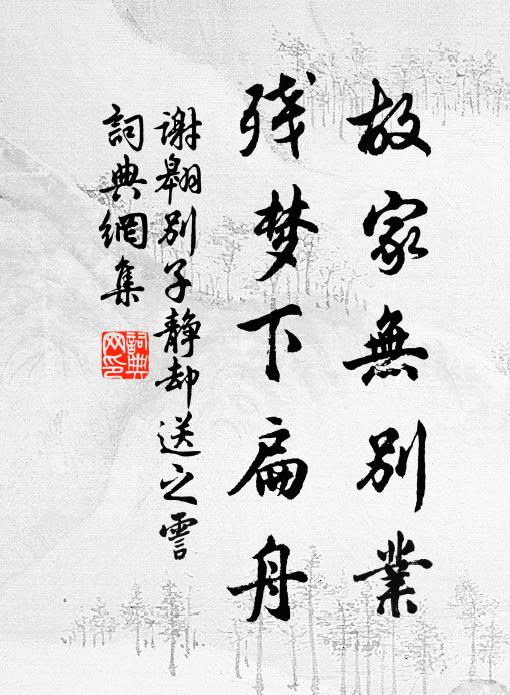 故家無別業
残梦下扁舟
谢翱别子静却送之霅
詞典網集
詞典網印